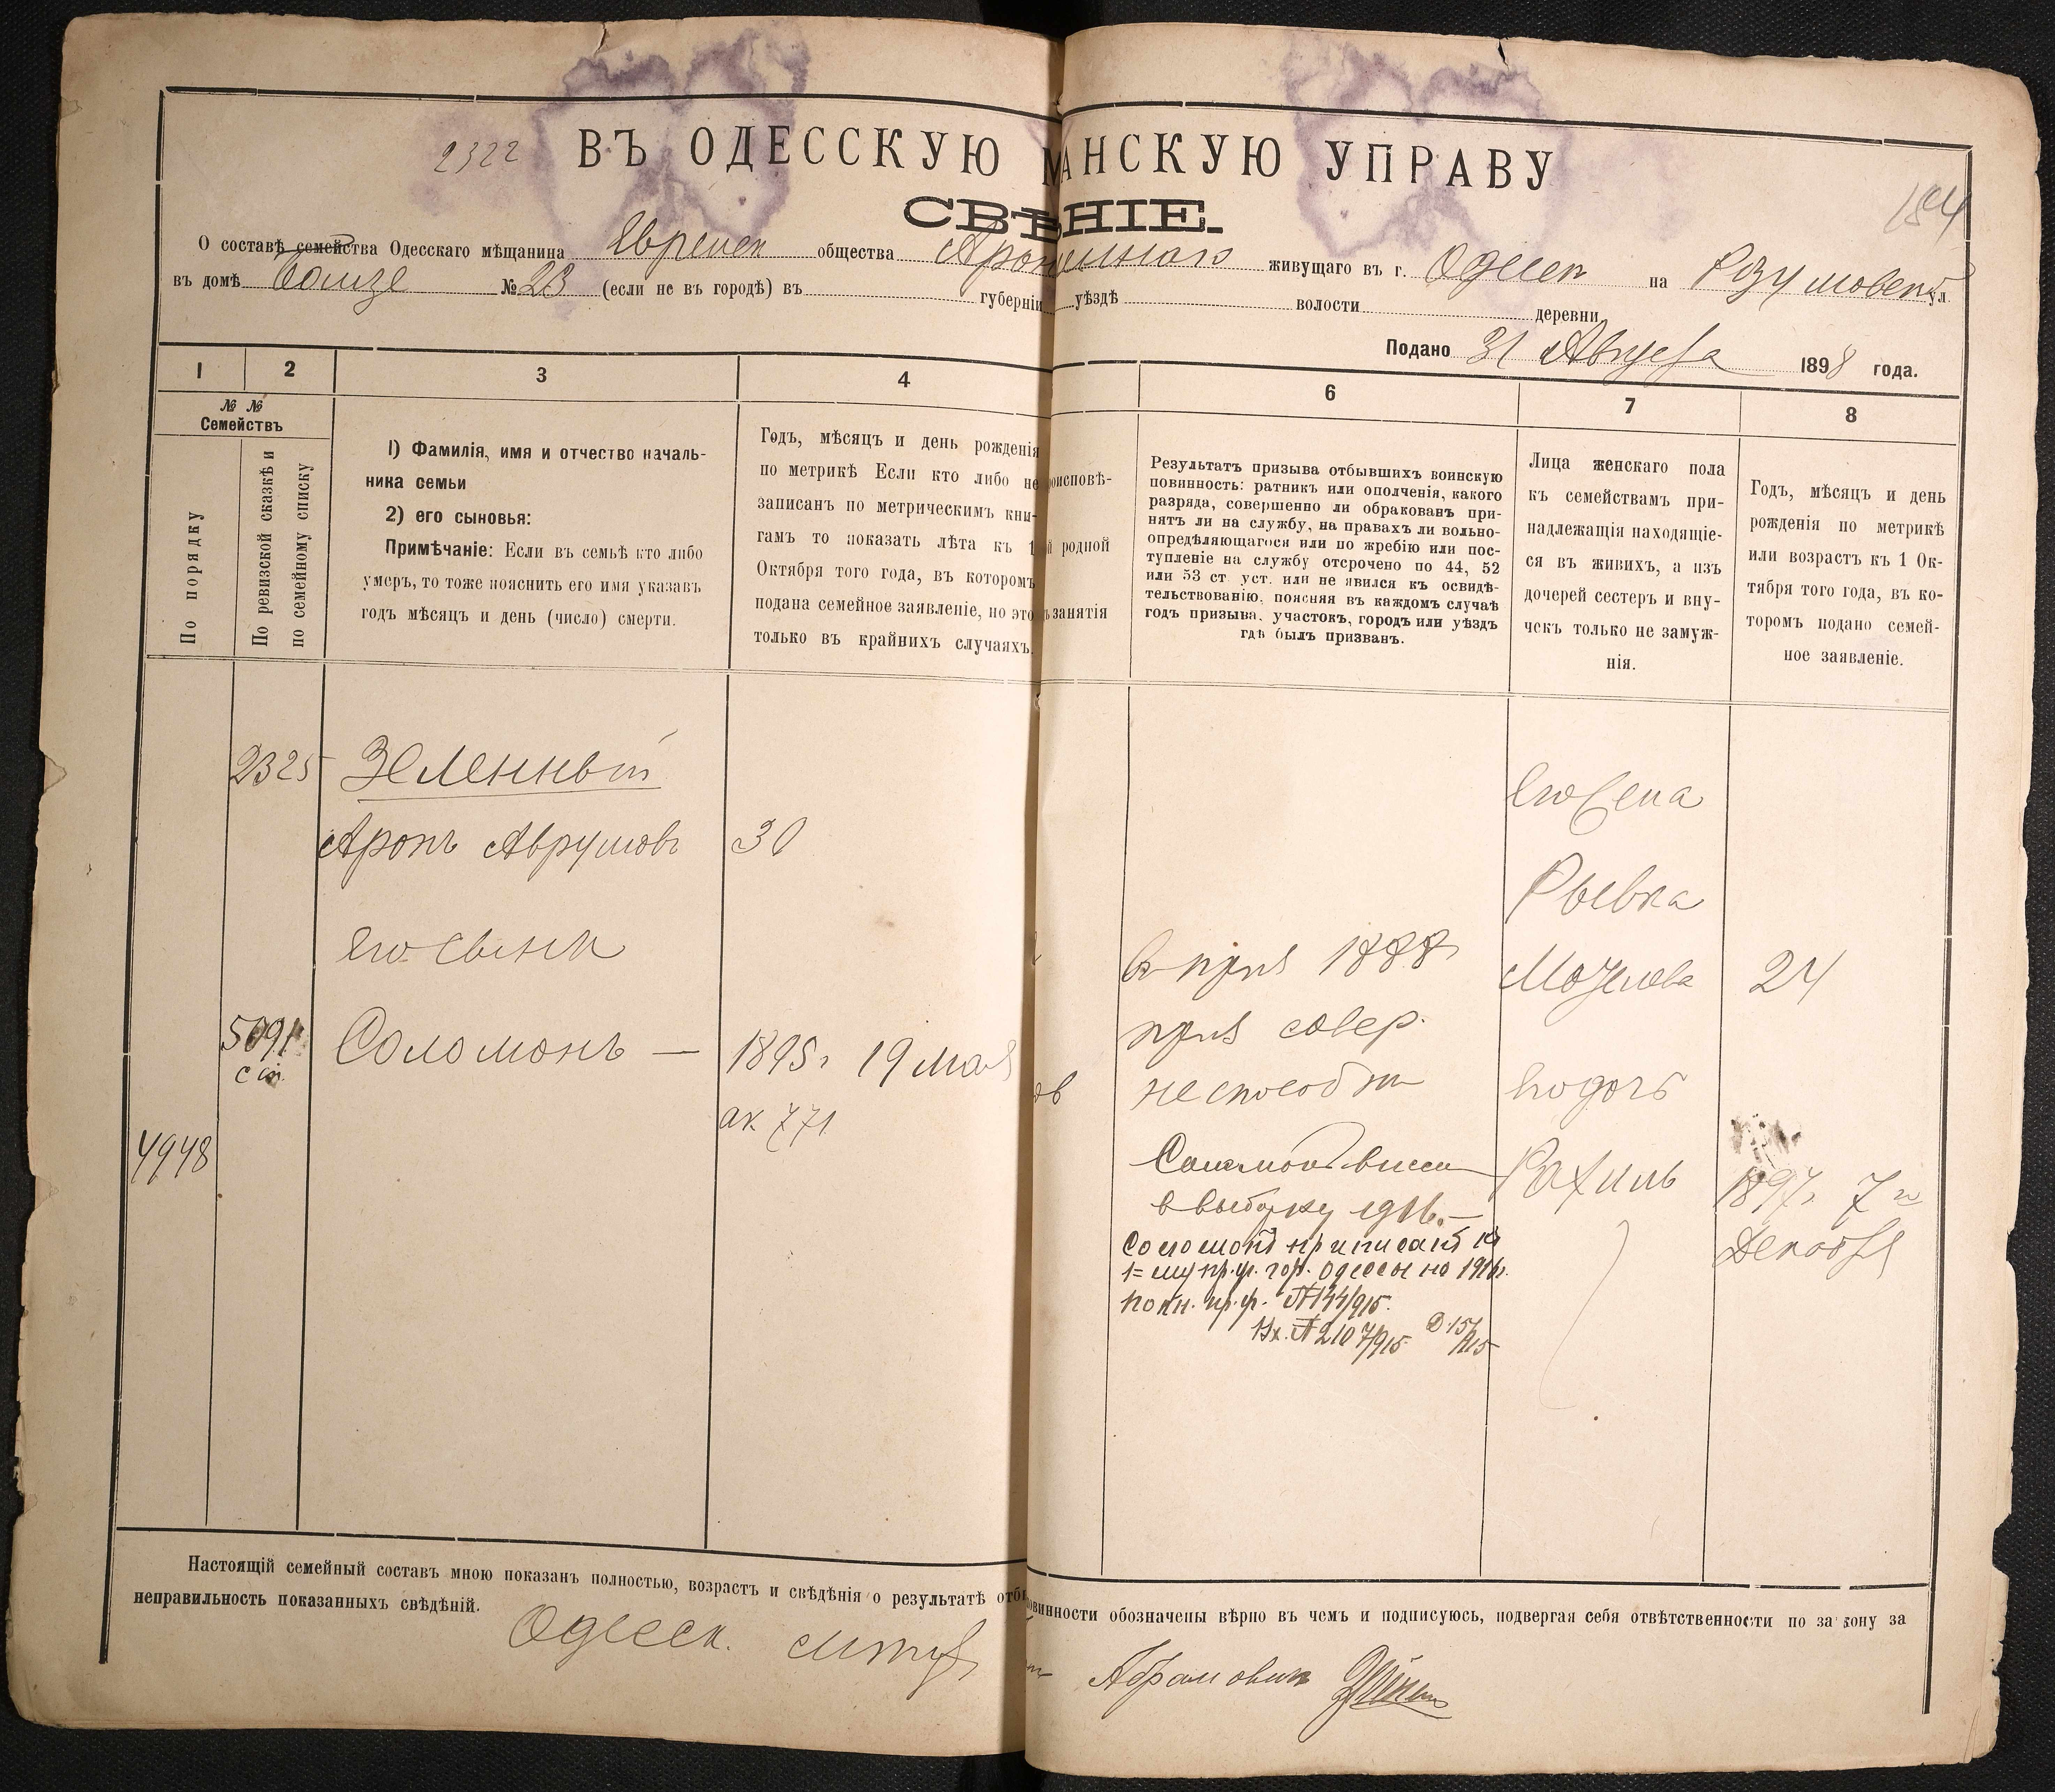 2322 ВЪ ОДЕССКУЮ МАНСКУЮ УПРАВУ
184
СВѢНІЕ.
О составѣ семейства Одесскаго мѣщанина Евреиск общества живущаго въ г. Одесск на ул.
въ домѣ № 23 (если не въ городѣ) въ губерніи уѣздѣ волости деревни
Подано 31 Августа 1898 года.
1 2 3 4 6 7 8
№ №
Семействъ
По порядку
По ревизской сказкѣ и
по семейному списку
1) Фамилія, имя и отчество началь-
ника семьи
2) его сыновья:
Примѣчаніе: Если въ семьѣ кто либо
умеръ, то тоже пояснить его имя указавъ
годъ мѣсяцъ и день (число) смерти.
Годъ, мѣсяцъ и день рожденія
по метрикѣ Если кто либо не
записанъ по метрическимъ кни-
гамъ то показать лѣта къ 1
Октября того года, въ которомъ
подана семейное заявленіе, но это
только въ крайнихъ случаяхъ.
роисповѣ-
й родной
ъ занятія
Результатъ призыва отбывшихъ воинскую
повинность: ратникъ или ополченія, какого
разряда, совершенно ли обракованъ при-
нятъ ли на службу, на правахъ ли вольно-
опредѣляющагося или по жребію или пос-
тупленіе на службу отсрочено по 44, 52
или 53 ст. уст. или не явился къ освидѣ-
тельствованію, поясняя въ каждомъ случаѣ
годъ призыва, участокъ, городъ или уѣздъ
гдѣ былъ призванъ.
Лица женскаго пола
къ семействамъ при-
надлежащія находящіе-
ся въ живихъ, а изъ
дочерей сестеръ и вну-
чекъ только не замуж-
нія.
Годъ, мѣсяцъ и день
рожденія по метрикѣ
или возрастъ къ 1 Ок-
тября того года, въ ко-
торомъ подано семей-
ное заявленіе.
2325 Зеленный
Аронъ Аврумовъ 30
его сынъ
5091 Соломонъ — 1895 г 19 мая
с сп.
ак 771
4948
ов
въ 1888
совер.
неспособн
Соломонъ внесен
в выборку 1916. —
Соломонъ приписанъ къ
1=му пр. уч. гор. Одессы на 1916г.
по кн. пр. уч. № 144/915.
Вх. № 2107/915 Д. 15/915
его жена
Рывка
24
его дочь
Рахиль 1897 г 7го
Декабря
Настоящій семейный составъ мною показанъ полностью, возрастъ и свѣдѣнія о результатѣ отбы овинности обозначены вѣрно въ чемъ и подписуюсь, подвергая себя отвѣтственности по закону за
неправильность показанныхъ свѣдѣній.
Одесск. Абрамовичъ